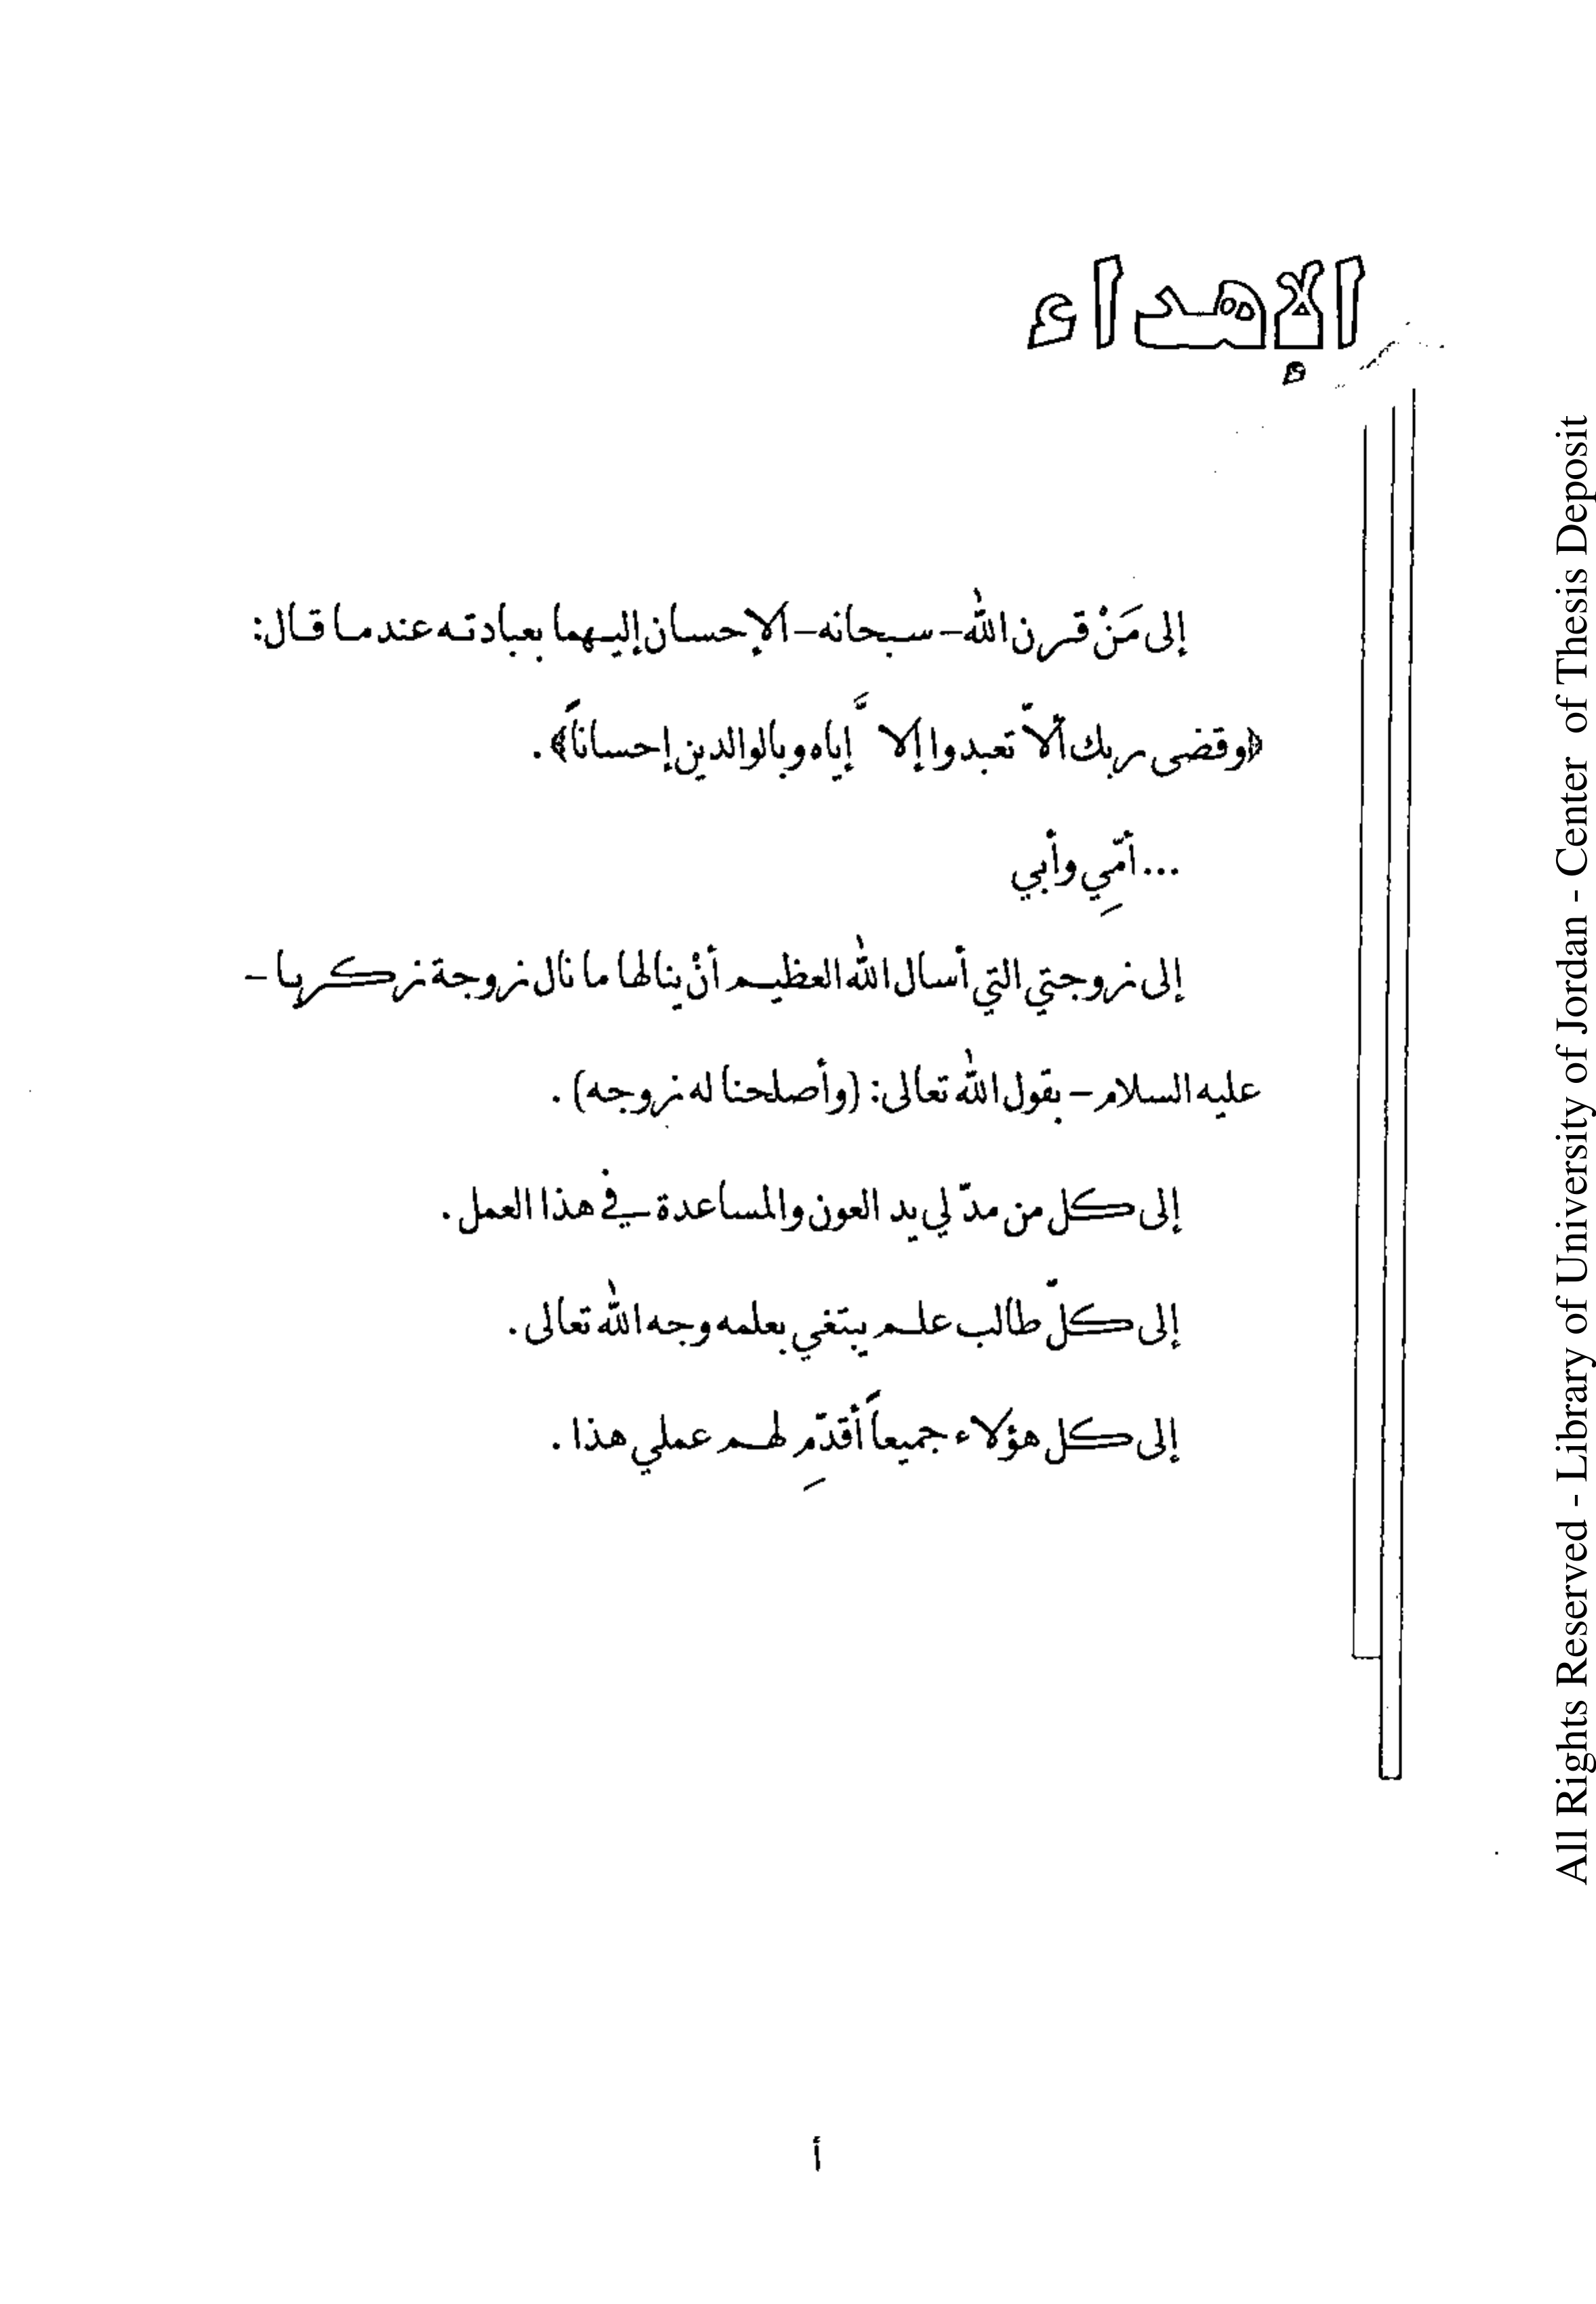 الإهداء
إلى مَنْ قرن الله – سبحانه – الإحسان إليهما بعبادته عندما قال:
﴿وقضى ربك ألاّ تعبدوا إلا َّ إياه وبالوالدين إحساناً﴾.
... أمّي وأبي
إلى زوجتي التي أسال الله العظيم أنْ ينالها ما نال زوجة زكريا –
عليه السلام – بقول الله تعالى: (وأصلحنا له زوجه).
إلى كل من مدّ لي يد العون والمساعدة في هذا العمل.
إلى كلّ طالب علم يبتغي بعلمه وجه الله تعالى.
إلى كل هؤلاء جميعاً أقدّمِ لهم عملي هذا.
أ
All Rights Reserved - Library of University of Jordan - Center of Thesis Deposit